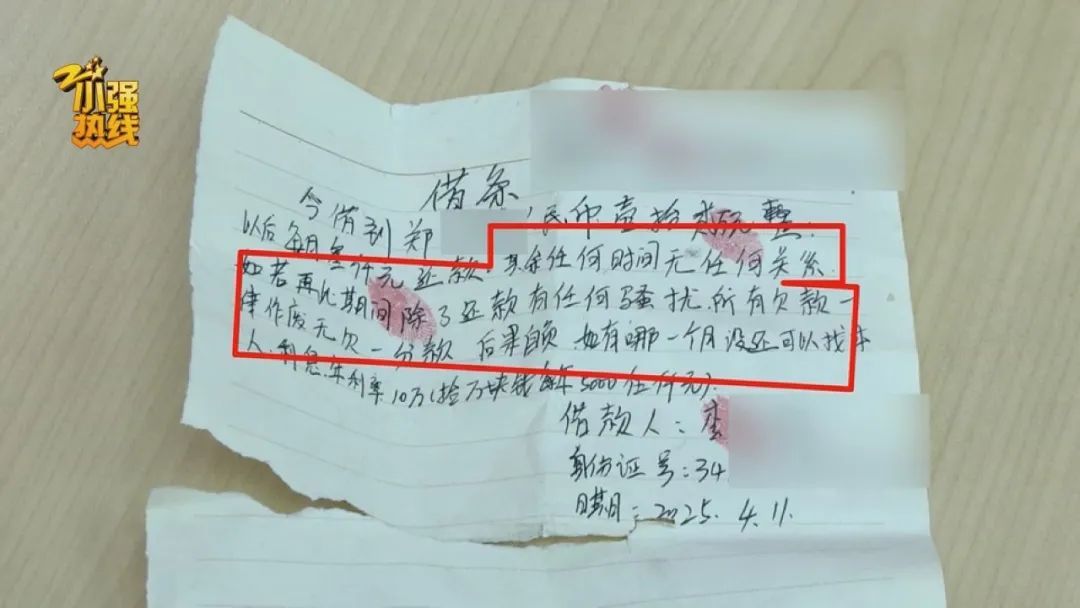 小强热线
借条
今借到郑 民币壹拾 元整.
以后每月叁仟元还款.其余任何时间无任何关系.
如若再此期间除了还款有任何骚扰.所有欠款一
律作废无欠一分款 后果自负 如有哪一个月没还可以找本
人.利息.年利率10万(拾万块钱每年5000伍仟元).
借款人:李
身份证号:34
日期:2025.4.11.